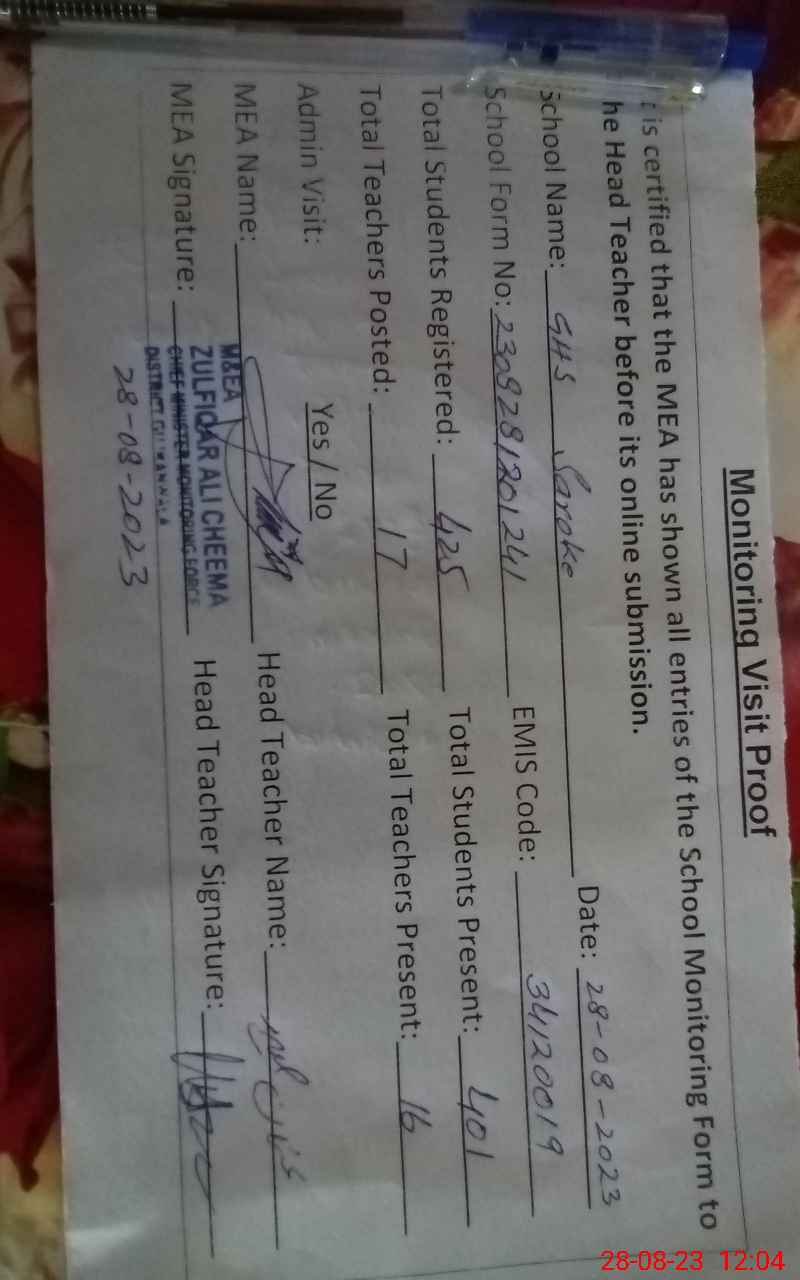 Monitoring Visit Proof
t is certified that the MEA has shown all entries of the School Monitoring Form to
he Head Teacher before its online submission.
School Name: GHS Saroke Date: 28-08-2023
School Form No: 2308281201241 EMIS Code: 34120019
Total Students Registered: 425 Total Students Present: 401
Total Teachers Posted: 17 Total Teachers Present: 16
Admin Visit: Yes / No
MEA Name: Head Teacher Name:
MEA Signature: Head Teacher Signature:
M&EA
ZULFIQAR ALI CHEEMA
CHIEF MINISTER MONITORING FORCE
DISTRICT
28-08-2023
28-08-23 12:04